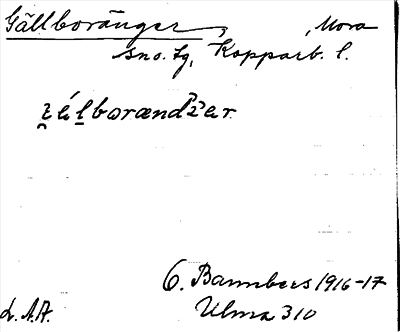 Gällboränger, Mora
sno. Lg, Kopparb. l.
ʒélborændʒer
O. Bannbers 1916-17
L.A.A. Ulma 310